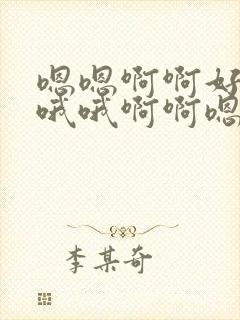 嗯嗯啊啊好
哦哦啊啊嗯
李某奇